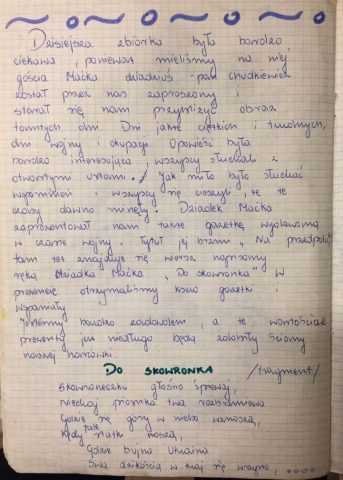 Dzisiejsza zbiórka była bardzo
ciekawa, ponieważ mieliśmy na niej
gościa Maćka dziadziuś - pan Chudkiewicz
został przez nas zaproszony i
starał się nam przybliżyć obraz
tamtych dni. Dni jakże ciężkich i trudnych,
dni wojny i okupacji. Opowieść była
bardzo interesująca, wszyscy słuchali z
otwartymi ustami. Jak miło było słuchać
wspomnień i wszyscy się cieszyli, że te
czasy dawno minęły. Dziadek Maćka
zaprezentował nam także gazetkę wydawaną
w czasie wojny. Tytuł jej brzmi "Na przedpolu"
tam też znajduje się wiersz napisany
ręką dziadka Maćka "Do skowronka" W
prezencie otrzymaliśmy ksero gazetki i
wspaniały
Jesteśmy bardzo zadowoleni, a te wartościowe
prezenty już niedługo będą zdobiły ściany
naszej harcówki.
DO SKOWRONKA /fragment/
Skowroneczku głośno śpiewaj,
Niechaj piosnka twa rozbrzmiewa
Gdzie się góry w niebo wznoszą,
Kędy fale statki noszą,
Gdzie bujna Ukraina
Swą dzikością w kraj się wrzyna, ....